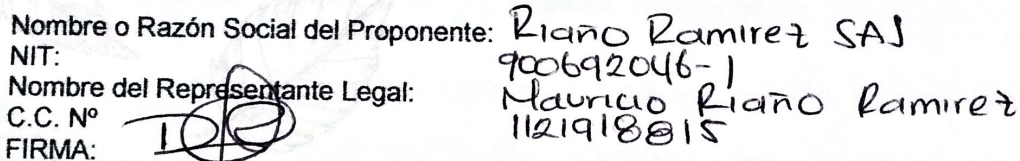 Nombre o Razón Social del Proponente: Riaño Ramirez SAS
NIT: 900692046-1
Nombre del Representante Legal: Mauricio Riaño Ramirez
C.C. Nº 1121918815
FIRMA: